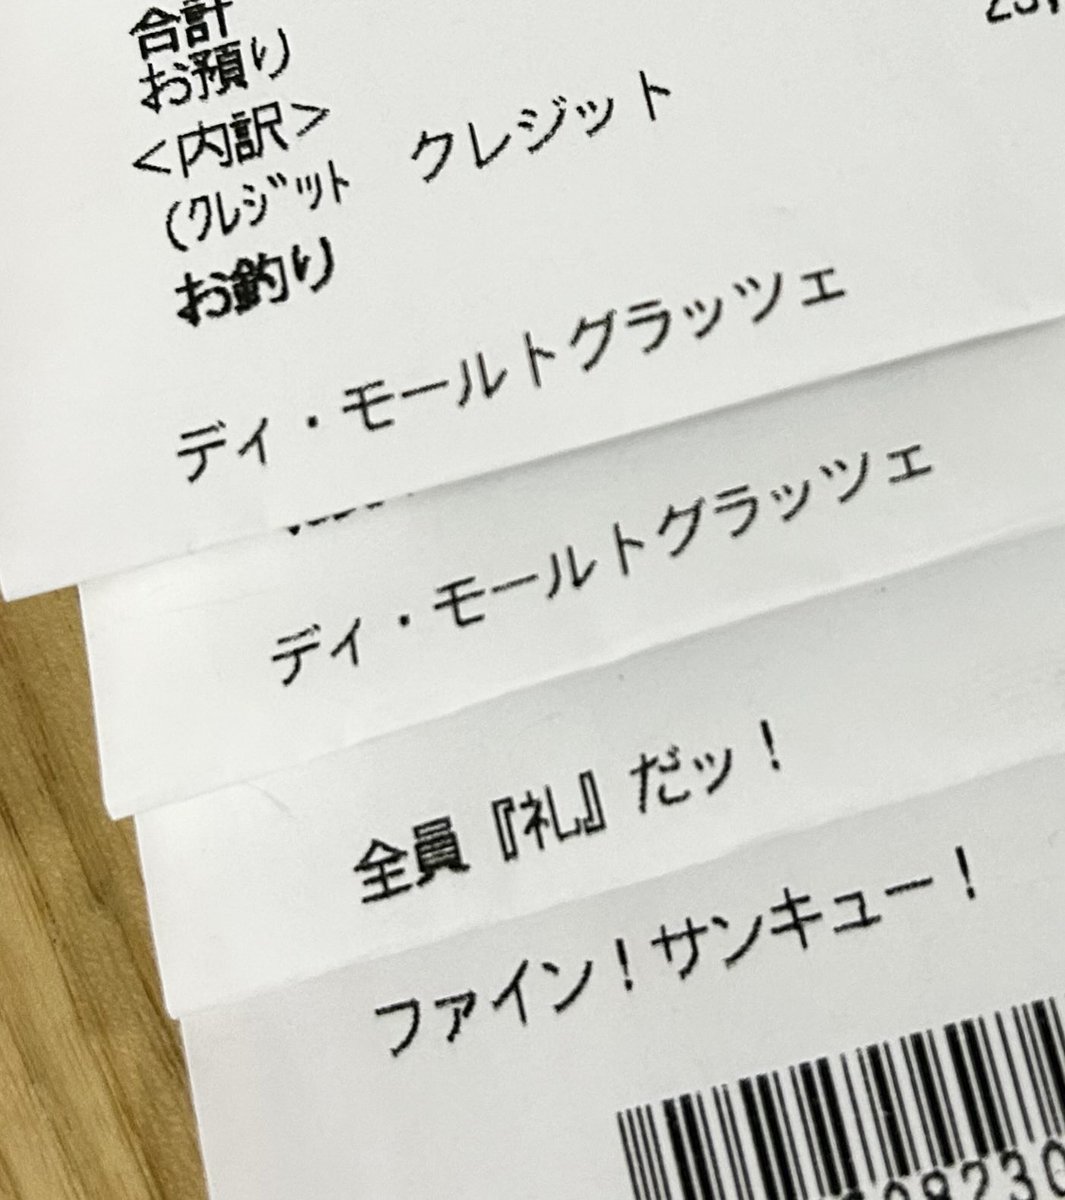 合計
お預り
<内訳>
(ｸﾚｼﾞｯﾄ クレジット
お釣り
ディ・モールトグラッツェ
ディ・モールトグラッツェ
全員『礼』だッ！
ファイン！サンキュー！